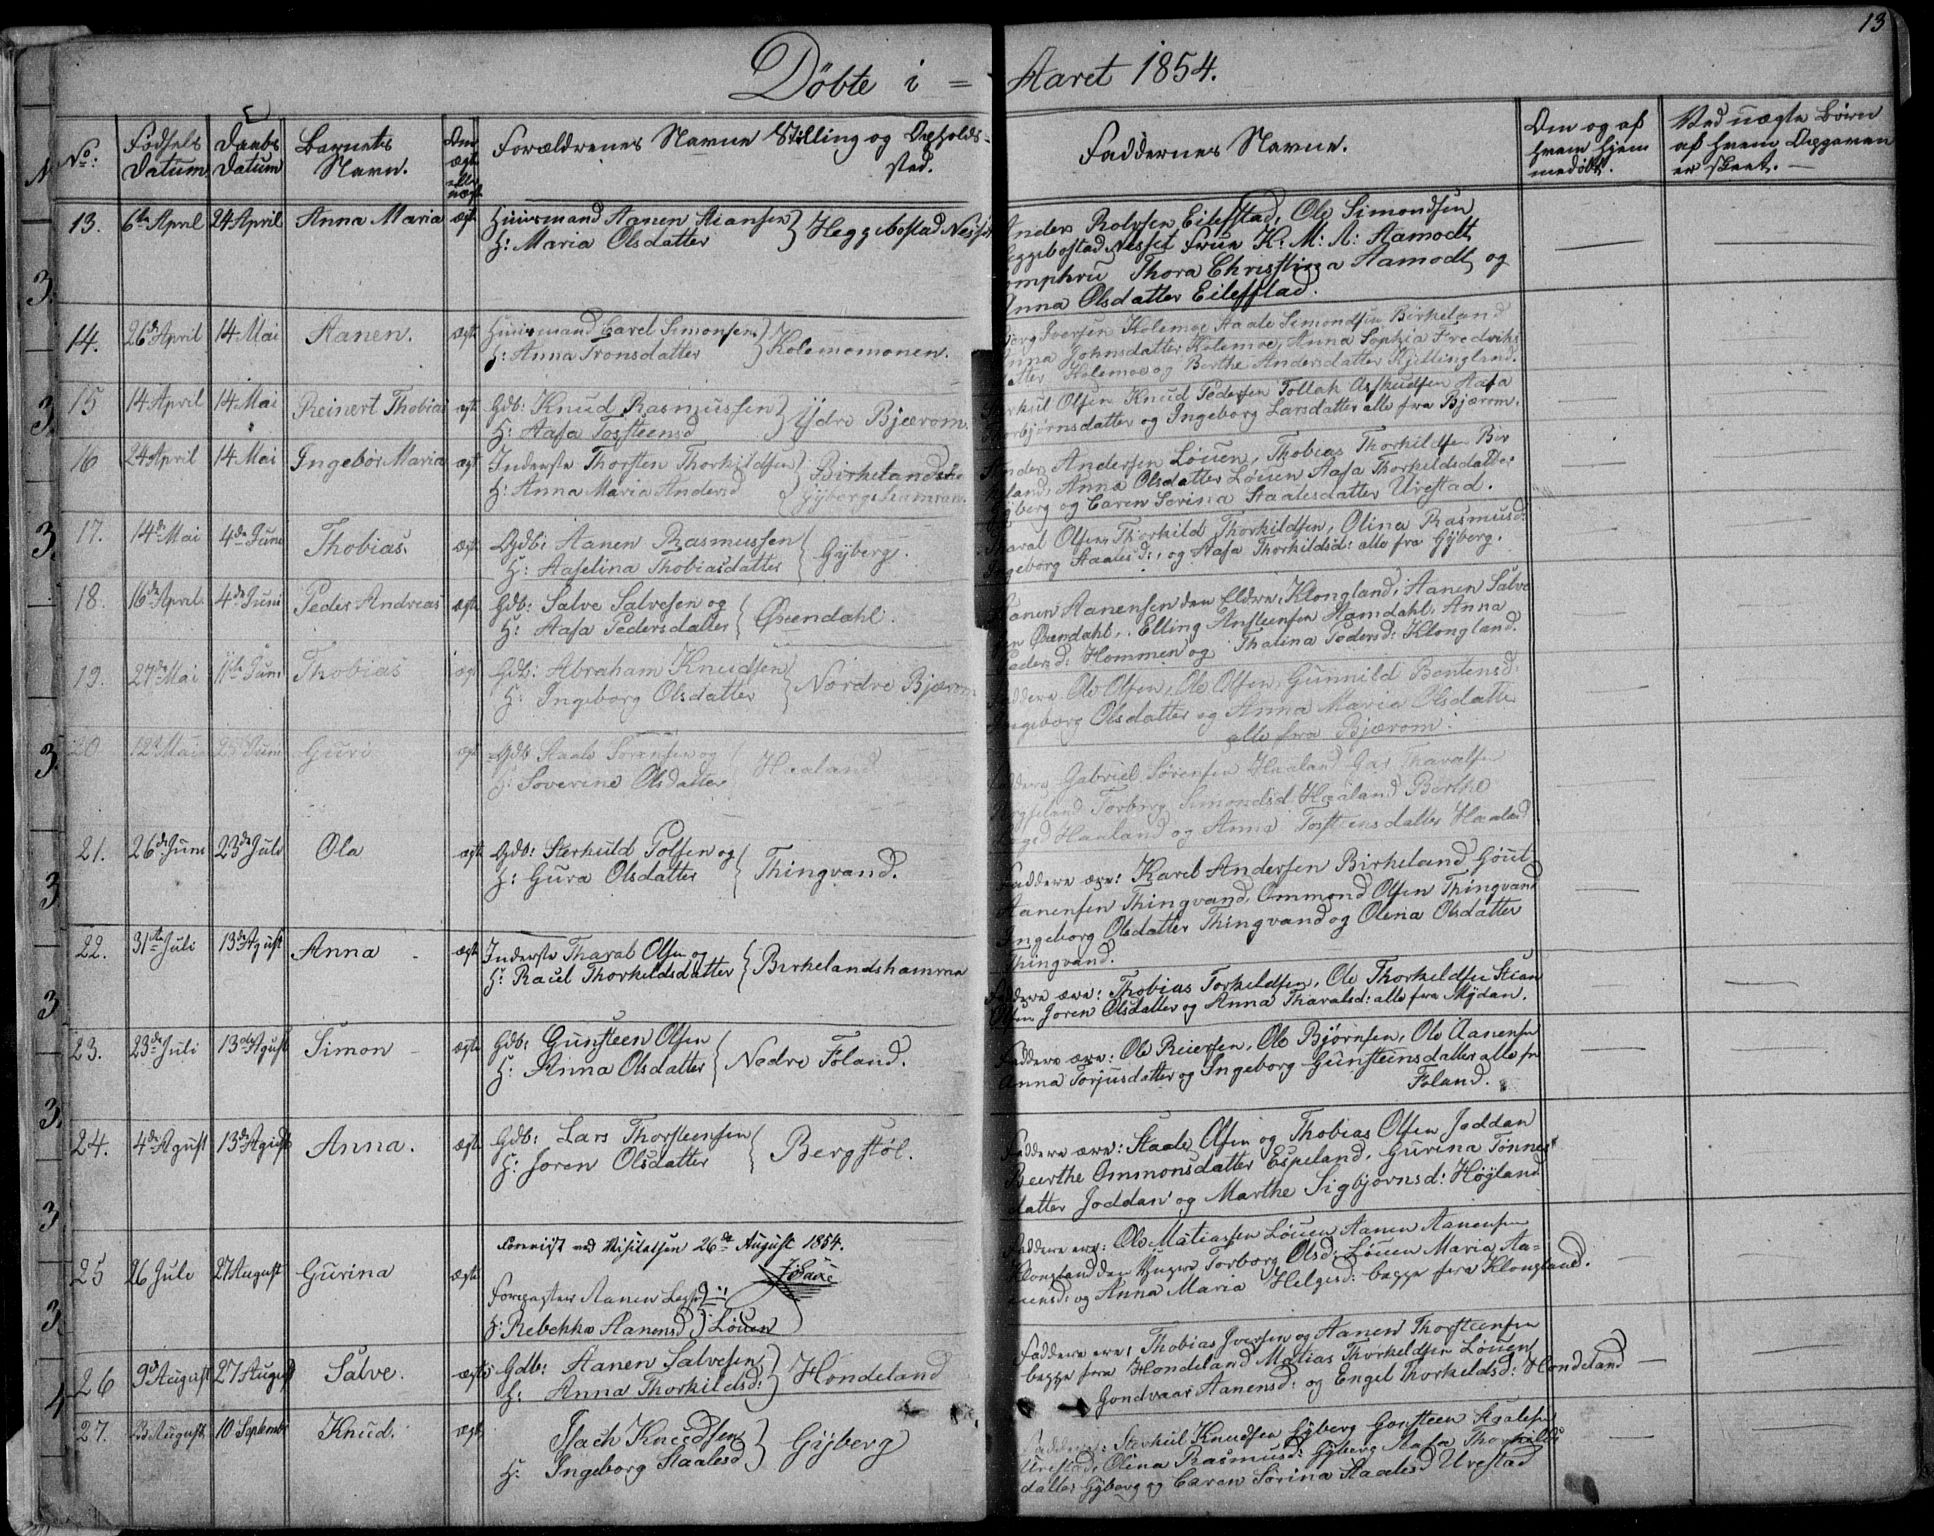 13
Döbte i = Aaret 1854.
No: Födsels Datum Daabs Datum Barnets Navn. Om ægte eller uægte Forældrenes Navne Stilling og Opholds-sted. Faddernes Navne. Om og af hvem hjemmedöbt. Ved uægte Børn af hvem Opgaven er skeet.
13. 6te April 24 April Anna Maria ægte Huusmand Aanen Stiansen
H: Maria Olsdatter } Heggebostad Nesset
Anders Rolvsen Eilefstad, Ole Simondsen
Heggebostad Nesset Frue K: M: A: Aamodt
Jomphru Thora Christina Aamodt og
Anna Olsdatter Eilefstad.
14. 26de April 14 Mai Aanen. ægte Huusmand Carel Simonsen
H: Anna Tronsdatter } Kolemomonen.
Iversen Kolemoe Staale Simondsen Birkeland
Anna Johnsdatter Kolemoe, Anna Sophia Fredriks
datter Kolemoe og Berthe Andersdatter Kjellingland.
15 14 April 14 Mai Reinert Thobias ægte Gdb: Knud Rasmussen
H: Aasa Torsteensd } Ydre Bjærom.
Sterkul Olsen Knud Pedersen Tollak Aslaksen Aasa
Thorbjørnsdatter og Ingeborg Larsdatter alle fra Bjærom.
16 24 April 14 Mai Ingebor Maria ægte Inderste Thorsten Thorkildsen
H: Anna Maria Andersd } Birkelands
Gyberghamran.
Anders Andersen Löuen, Thobias Thorkildsen Bir
keland, Anna Olsdatter Löuen Aasa Thorkeldsdatter
Gyberg og Caren Sorina Staalesdatter Urestad.
17. 14de Mai 4de Juni Thobias. ægte Gdb: Aanen Rasmussen
H: Aaselina Thobiasdatter } Gyberg.
Tharal Olsen, Thorkild Thorkildsen, Olina Rasmusd:
Ingeborg Staalesd:, og Aasa Thorkildsd: alle fra Gyberg.
18. 16de April 4de Juni Peder Andreas ægte Gdb: Salve Salvesen og
H: Aasa Pedersdatter { Øvendahl.
Aanen Aanensen den Eldre, Klongland, Aanen Salve
sen Øvendahl, Elling Ansteensen Hamdahl, Anna
Pedersd: Hommen og Thalina Pedersd: Klongland.
19. 27de Mai 11te Juni Thobias ægte Gdb: Abraham Knudsen
H: Ingeborg Olsdatter { Nordre Bjærom
Faddere Ole Olsen, Ole Olsen, Gunnild Bentensd:
Ingeborg Olsdatter og Anna Maria Olsdatter
alle fra Bjærom.
20. 12 Mai 25 Juni Guri ægte Gdb Staale Sørensen og
H: Severine Olsdatter Haaland
Faddere Gabriel Sørensen Haaland Tharalsen
Torborg Simondsd Haaland Berthe
Haaland og Anna Torsteinsdatter Haaland
21. 26de Juni 23de Juli Ola ægte Gdb: Sterkuld Polsen og
H: Gura Olsdatter { Thingvand.
Faddere ære: Karel Andersen Birkeland Göut
Aanensen Thingvand, Ommond Olsen Thingvand
Ingeborg Olsdatter Thingvand og Olena Olsdatter
Thingvand.
22. 31te Juli 13de Agust Anna ægte Inderste Tharal Olsen og
H: Raeil Thorkeldsdatter { Birkelandshamma
Faddere ære: Thobias Torkeldsen, Ole Thorkeldsen Stian
Olsen Joren Olsdatter og Anna Tharalsd: alle fra Mydan.
23. 23de Juli 13de Agust Simon ægte Gdb: Gunsteen Olsen
H: Anna Olsdatter { Nedre Foland.
Faddere ære: Ole Reiersen, Ole Bjørnsen, Ole Aanensen
Anna Torjusdatter og Ingeborg Gunsteensdatter alle fra
Foland.
24. 4de Agust 13de Agust Anna. ægte Gdb: Lars Thorsteensen
H: Joren Olsdatter { Bergstøl.
Faddere ære: Staale Olsen og Thobias Olsen Joddan
Beerthe Ommonsdatter Espeland, Gurina Tønnes
datter Joddan og Marthe Sigbjørnsd: Høyland
Foreviist ved Visitatsen 26de August 1854.
25 26 Jule 27 August Gurina ægte Forpagter Aanen
H: Rebekka Aanensd } Löuen
Faddere ere: Ole Matiassen Löuen Aanen Aanensen
Klongland den Yngre Torborg Olsd: Löuen Maria Aa-
nensd: og Anna Maria Helgesd: begge fra Klongland.
26 9de August 27 August Salve. ægte Gdb: Aanen Salvesen
H: Anna Thorkildsd: } Hondeland
Faddere ere: Thobias Iversen og Aanen Thorsteensen
begge fra Hondeland Matias Thorkeldsen Löuen
Gondvaar Aanensd: og Engel Thorkeldsd: Hondeland
27. 23 August 10 September Knud. ægte Isach Knudsen
H: Ingeborg Staalesd } Gyberg
Faddere: Sterkul Knudsen Gyberg Gonsteen Staalesen
Urestad, Olina Rasmusd: Gyberg Aasa Thorkilds
datter Gyberg og Caren Sorina Staalesd Urestad